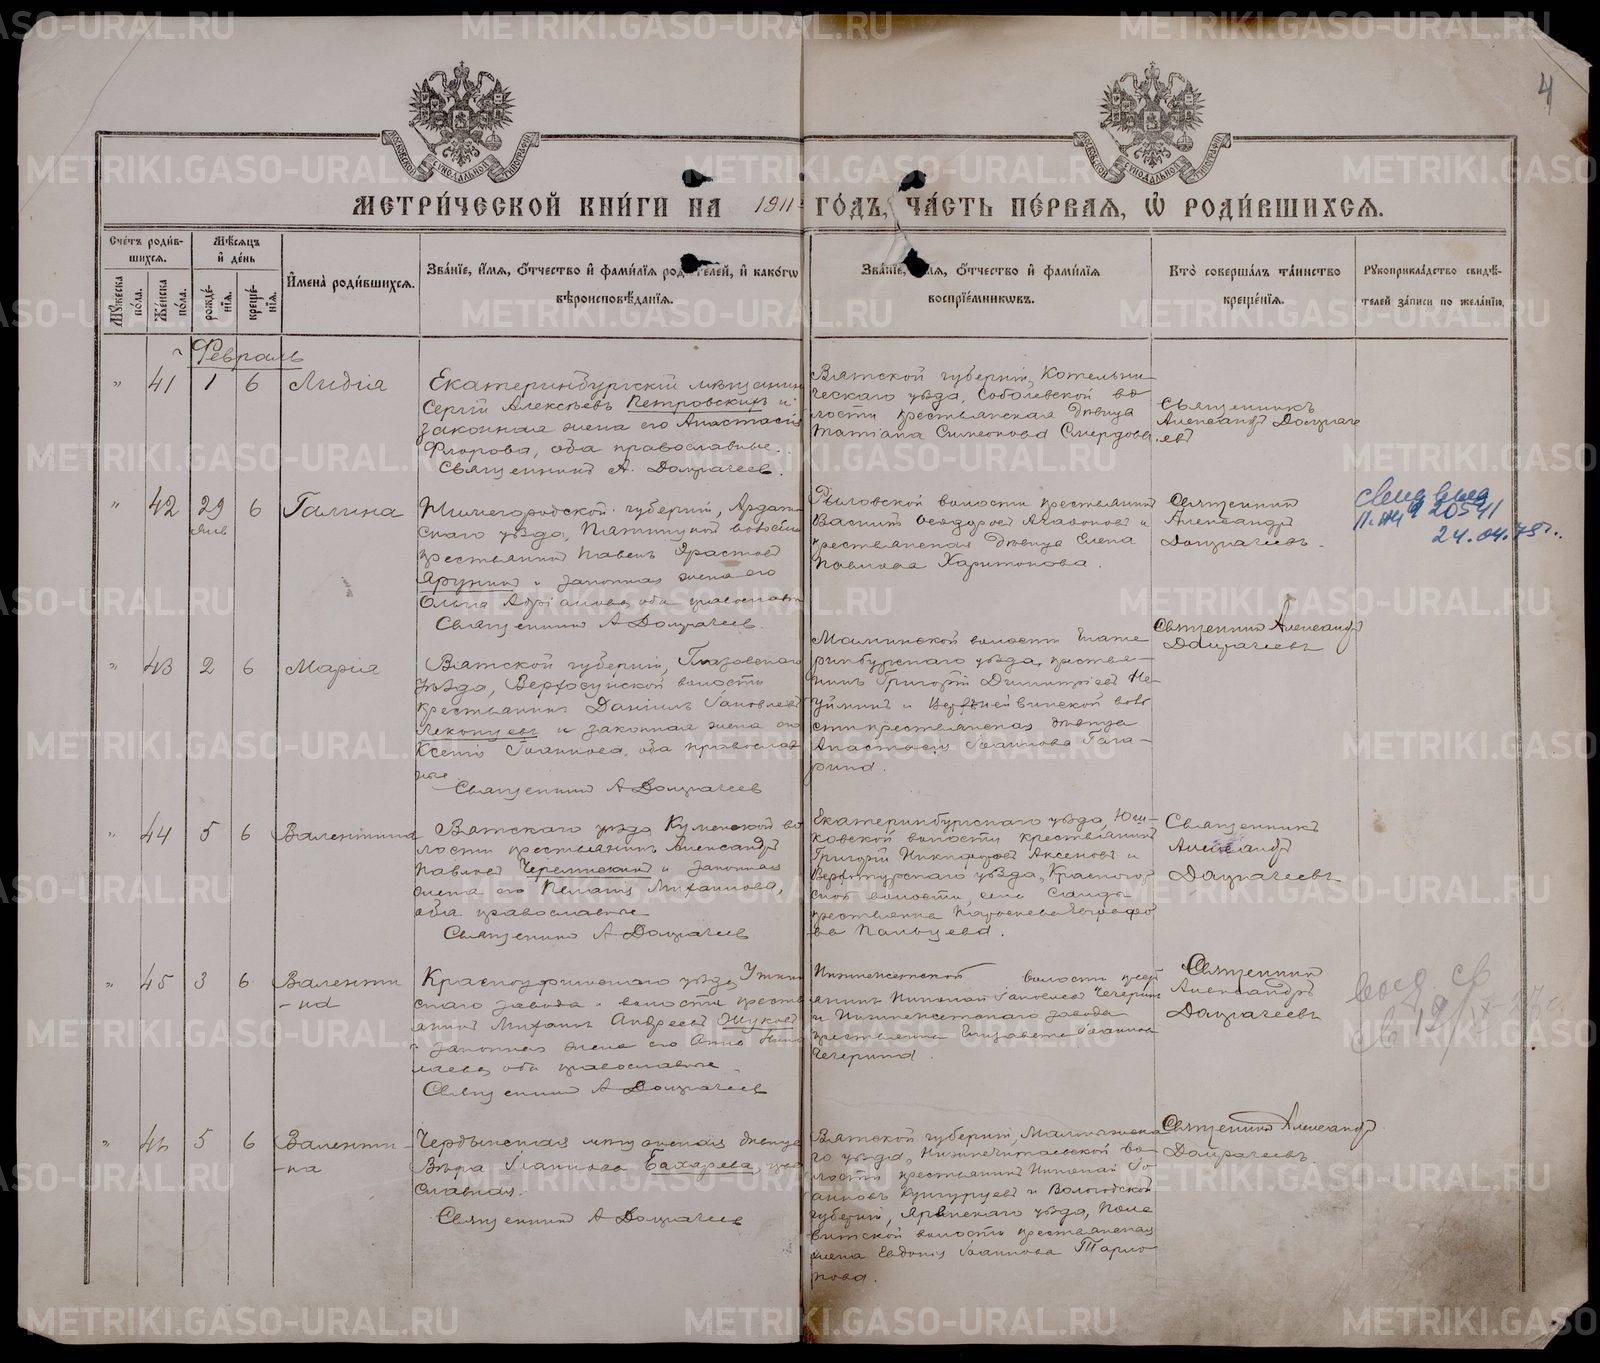 4
МОСКОВСКОЙ СѴНОДАЛЬНОЙ ТИПОГРАФІИ
МОСКОВСКОЙ СѴНОДАЛЬНОЙ ТИПОГРАФІИ
МЕТРИ́ЧЕСКОЙ КНИ́ГИ НА 1911 ГО́ДЪ, ЧА́СТЬ ПЕ́РВАЯ, Ѡ РОДИ́ВШИХСЯ.
Сче́тъ роди́в-
шихся.
Мужеска по́ла.
Же́нска по́ла.
Мѣ́сяцъ
и де́нь
рожде́нія.
креще́нія.
Имена̀ роди́вшихся.
Зва́ніе, и́мя, о́тчество и фами́лія родителей, и како́гѡ
вѣроисповѣ́данія.
Зва́ніе, имя, о́тчество и фами́лія
воспріе́мниковъ.
Кто̀ соверша́лъ та́инство
креще́нія.
Рукоприкла́дство свидѣ́-
телей за́писи по жела́нію.
Февраль
" 41 1 6 Лидіа
Екатеринбургскій мѣщанинъ
Сергій Алексѣевъ Петровскихъ и
законная жена его Анастасія
Флорова, оба православные.
Священникъ А. Домрачеев.
Вятской губерніи, Котельни-
ческаго уѣзда, Соболевской во-
лости крестьянская дѣвица
Татіана Симеонова Смердова
Священникъ
Александръ Домраче
евъ
" 42 29 6 Галина
Янв
Нижегородской губерніи, Ардатов
скаго уѣзда,
крестьянинъ Павелъ Ерастовъ
Ярунинъ и законная жена его
Ольга Адріанова, оба православн
Священникъ А Домрачеев.
волости крестьянинъ
Василій Ѳеодоровъ Агафоновъ и
крестьянская дѣвица Елена
Павлова Харитонова.
Священникъ
Александръ
Домрачеевъ.
20541
24.04.75г.
" 43 2 6 Маріа
Вятской губерніи, Глазовскаго
уѣзда, Верхосунской волости
крестьянинъ Даніилъ Іаковлевъ
и законная жена его
Ксенія Іоаннова, оба православ
ные
Священникъ А Домрачеев
волости Екате
ринбургскаго уѣзда, крестья-
нинъ Григорій Димитріевъ Не
уйминъ и воло
сти крестьянская дѣвица
Анастасія Іоаннова Гага-
рина.
Священникъ Александръ
Домрачеевъ
" 44 5 6 Валентина
Вятскаго уѣзда, Куменской во
лости крестьянинъ Александръ
Павловъ и законная
жена его Пелагія Михаилова,
оба православные
Священникъ А Домрачеев
Екатеринбургскаго уѣзда, Юш-
ковской волости крестьянинъ
Григорій Аксеновъ и
Верхотурскаго уѣзда, Красногор
ской волости, села
крестьянка
ва Пальцева.
Священникъ
Александръ
Домрачеевъ
" 45 3 6 Валенти
-на
Красноуфимскаго уѣзда, Уткин
скаго завода и волости крестъ
янинъ Михаилъ Андреевъ Жуковъ
и законная жена его Анна Нико
лаева, оба православные.
Священникъ А Домрачеев
Нижнесетской волости крест
янинъ Николай Іаковлевъ Чечеринъ
и Нижнесетскаго завода
крестьянка Елизавета Іоаннова
Чечерина.
Священникъ
Александръ
Домрачеевъ
выд. св
" 46 5 6 Валенти-
-на
Чердынская мѣщанская дѣвица
Вѣра Іоаннова Бахарева, право
славная.
Священникъ А Домрачеев
Вятской губерніи, Малмыжска
го уѣзда, во-
лости крестьянинъ Николай Іо
анновъ Кунгурцевъ и Вологодской
губерніи, Яренскаго уѣзда,
волости крестьянская
жена Евдокія Іоаннова
Священникъ Александръ
Домрачеевъ
METRIKI.GASO-URAL.RU